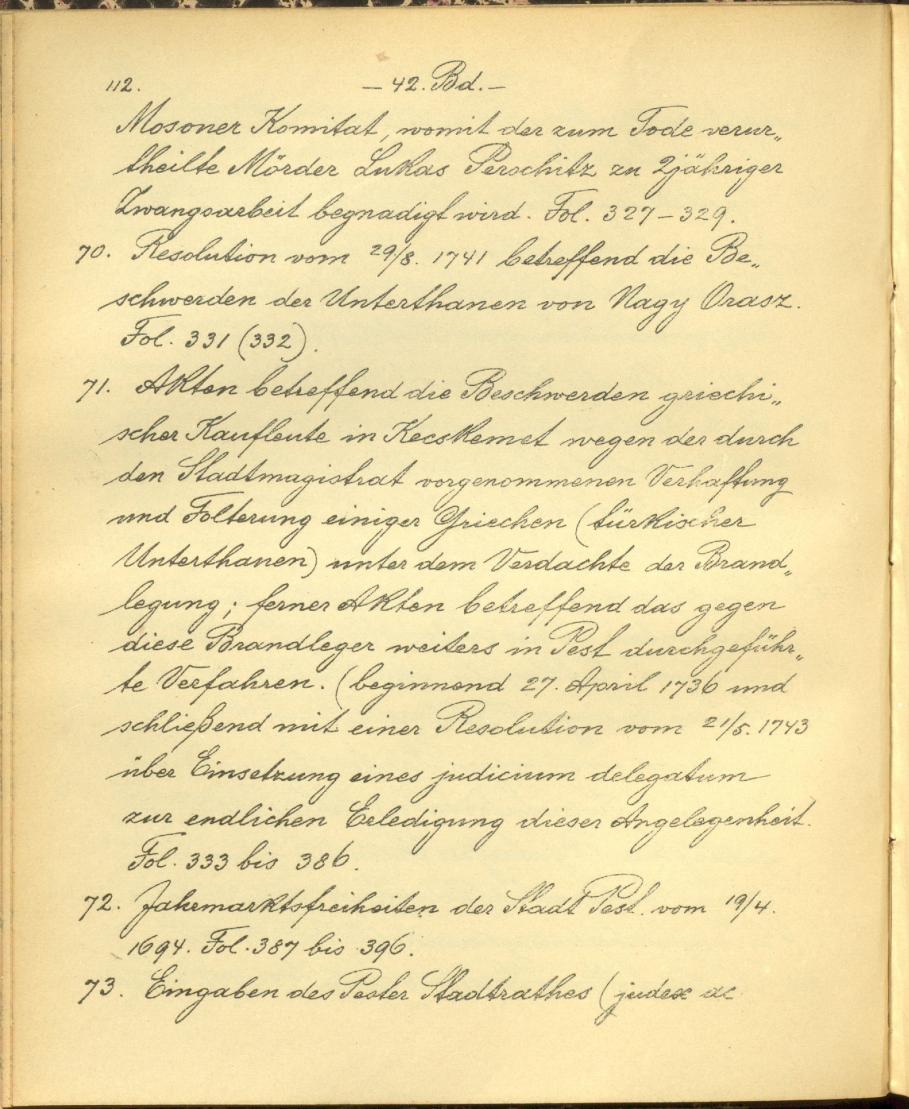 112. – 42. Bd. –
Mosoner Komitat, womit der zum Tode verur„
theilte Mörder Lukas Perschitz zu 2jähriger
Zwangsarbeit begnadigt wird. Fol. 327 – 329.
70. Resolution vom 29/8. 1741 betreffend die Be„
schwerden der Unterthanen von Nagy Orasz.
Fol. 331 (332).
71. Akten betreffend die Beschwerden griechi„
scher Kaufleute in Kecskemet wegen der durch
den Stadtmagistrat vorgenommenen Verhaftung
und Folterung einiger Griechen (türkischer
Unterthanen) unter dem Verdachte der Brand„
legung; ferner Akten betreffend das gegen
diese Brandleger weiters in Pest durchgeführ„
te Verfahren. (beginnend 27. April 1736 und
schließend mit einer Resolution vom 21/5. 1743
über Einsetzung eines judicium delegatum
zur endlichen Erledigung dieser Angelegenheit.
Fol. 333 bis 386.
72. Jahrmarktsfreiheiten der Stadt Pest. vom 19/4.
1694. Fol. 387 bis 396.
73. Eingaben des Pester Stadtrathes (judex ac